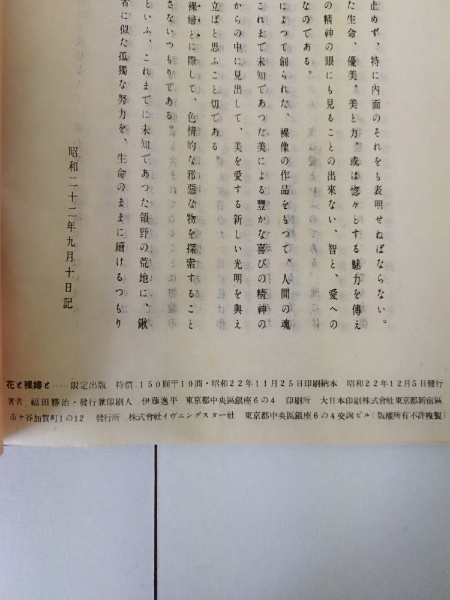 止めず、特に内面のそれをも表明せねばならない。
た生命、優美、美と力、或は惚々とする魅力を傳え
の精神の眼にも見ることの出來ない、智と、愛への
なのである。
によつて創られた、裸像の作品をもつて、人間の魂
これまで未知であつた美による豊かな喜びの精神の
からの中に見出して、美を愛する新しい光明を與え
立ばと思ふこと切である。
裸婦とに際して、色情的な邪惡な物を探索すること
さないつもりである。
といふ、これまでに未知であつた領野の荒地に、鍬
者に似た孤獨な努力を、生命のままに續けるつもり
昭和二十二年九月十日記
花と裸婦と……限定出版 特價.150圓〒10圓・昭和22年11月25日印刷納本 昭和22年12月5日發行
著者 福田勝治・發行兼印刷人 伊藤逸平 東京都中央區銀座6の4 印刷所 大日本印刷株式會社東京都新宿區
市ヶ谷加賀町1の12 發行所 株式會社イヴニングスター社 東京都中央區銀座6の4交詢ビル(版權所有不許複製)